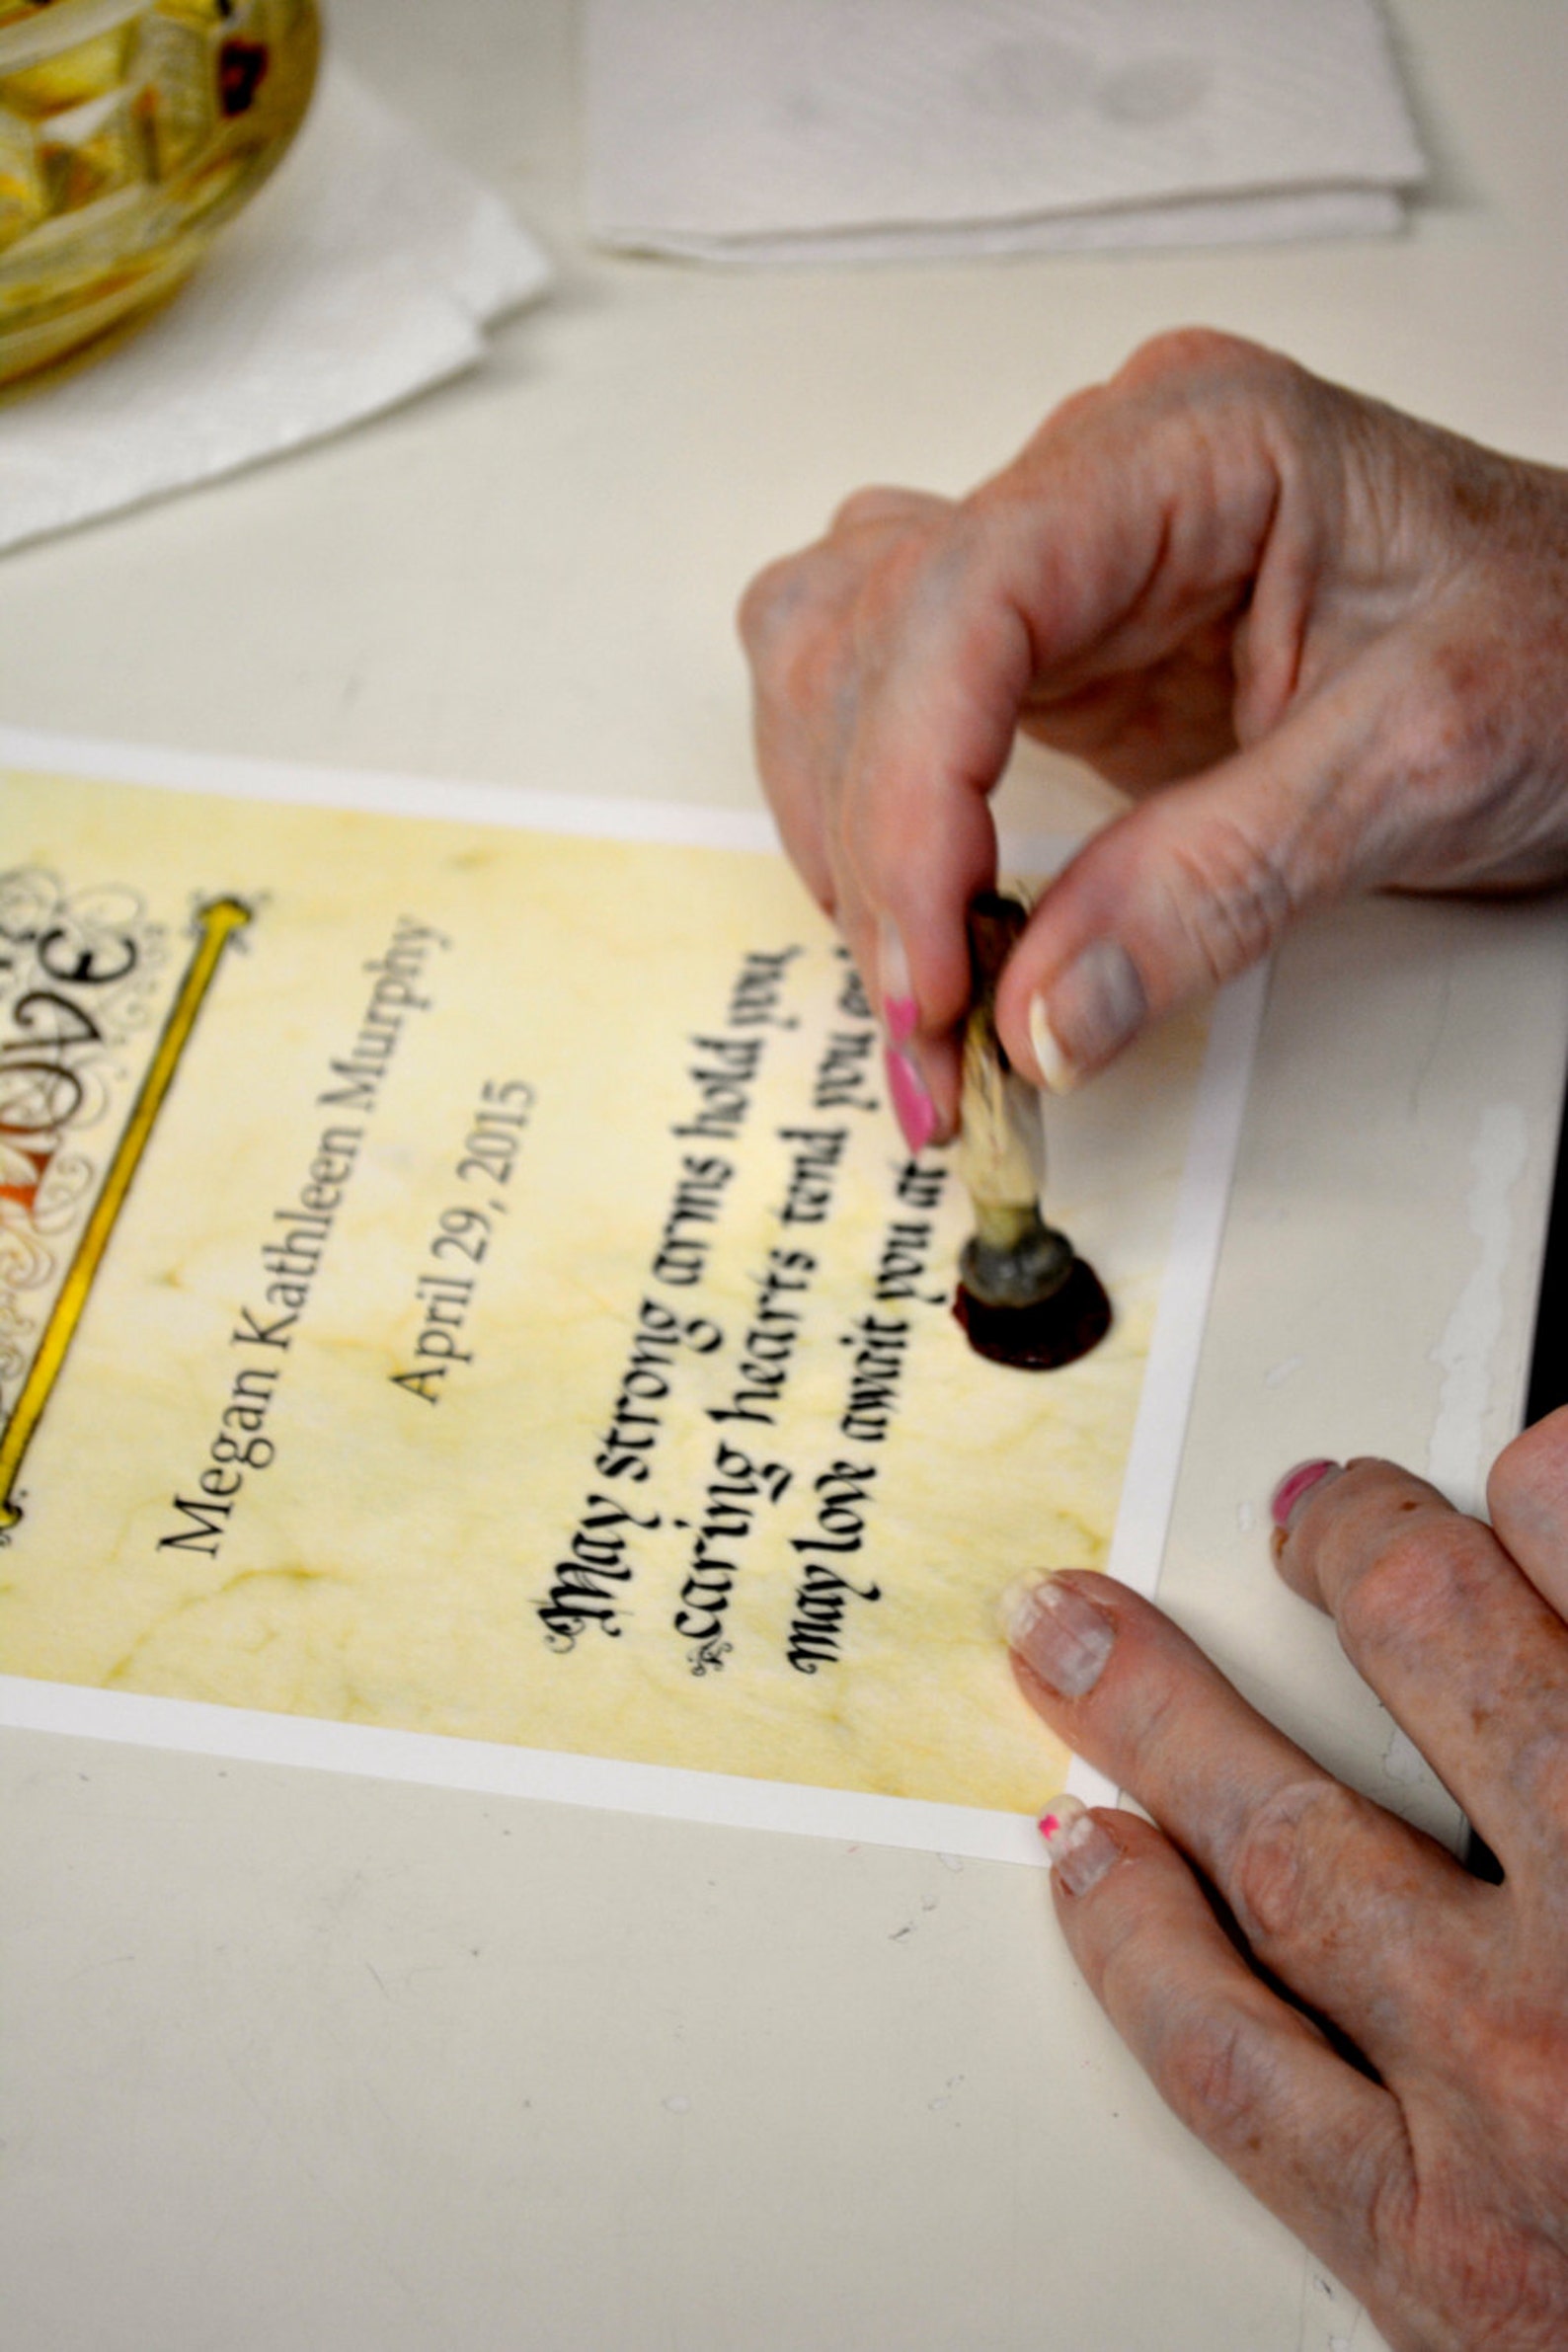 LOVE
Megan Kathleen Murphy
April 29, 2015
May strong arms hold you,
caring hearts tend you
May love await you at